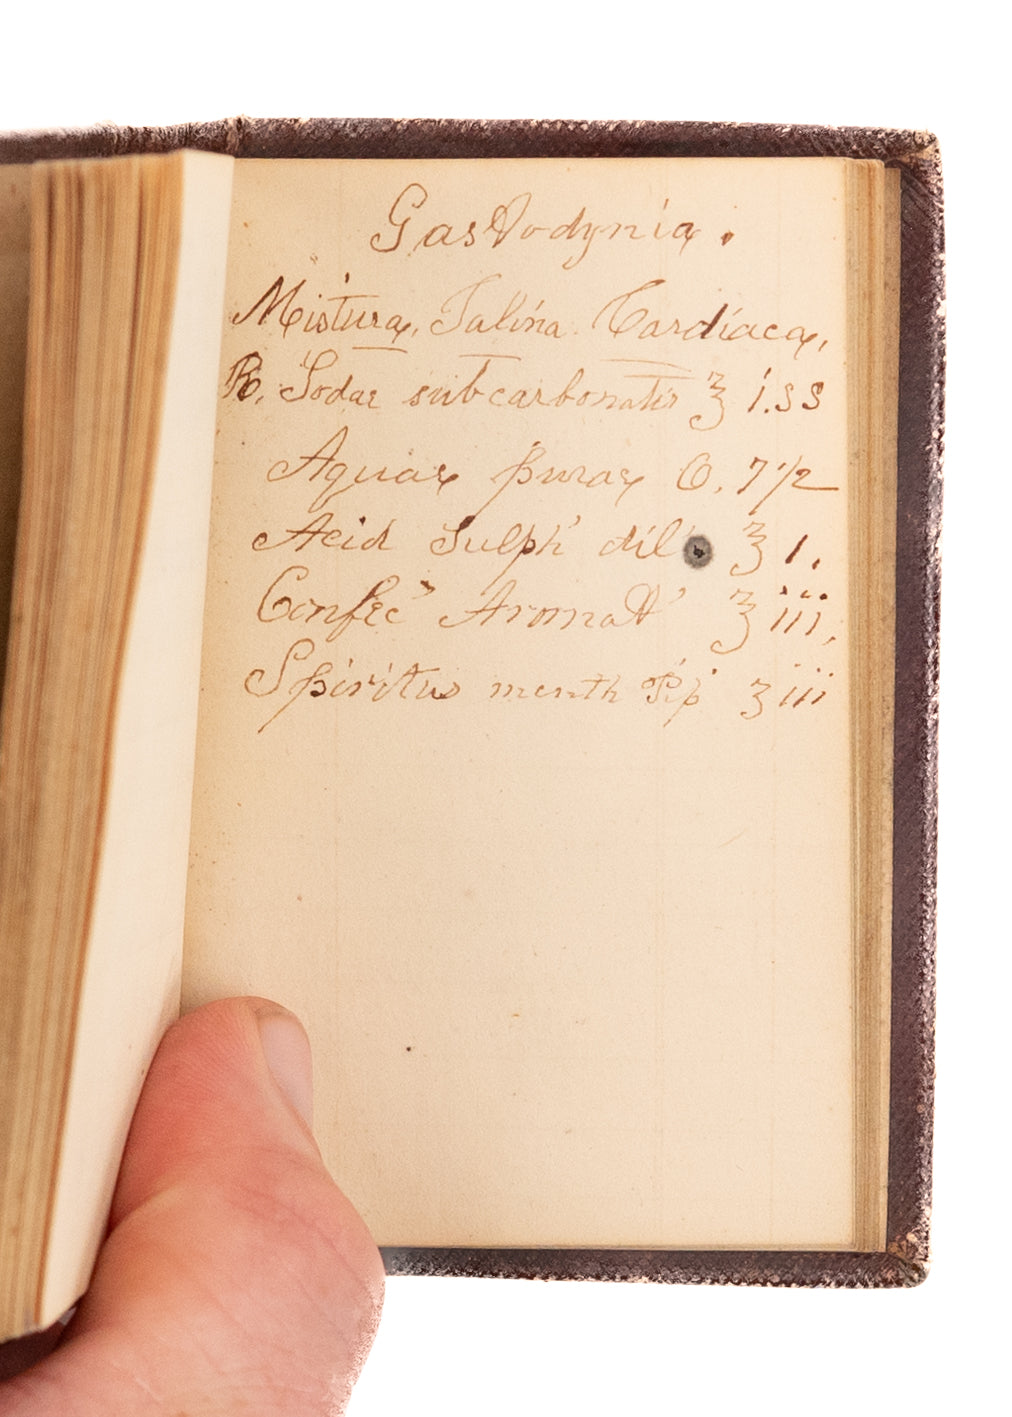 Gastrodynia.
Mistura, Salina Cardiaca,
℞. Sodae subcarbonatis ℥ i.ss
Aquae purae O. 7 1/2
Acid Sulph' dil' ℥ 1.
Confec' Aromat' ℥ iii,
Spiritus menth Pip' ʒ iii